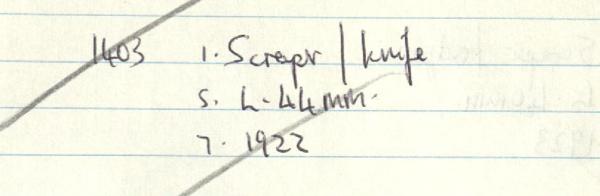 1403 1. Scrapr / knife
5. L. 44mm.
7. 1922